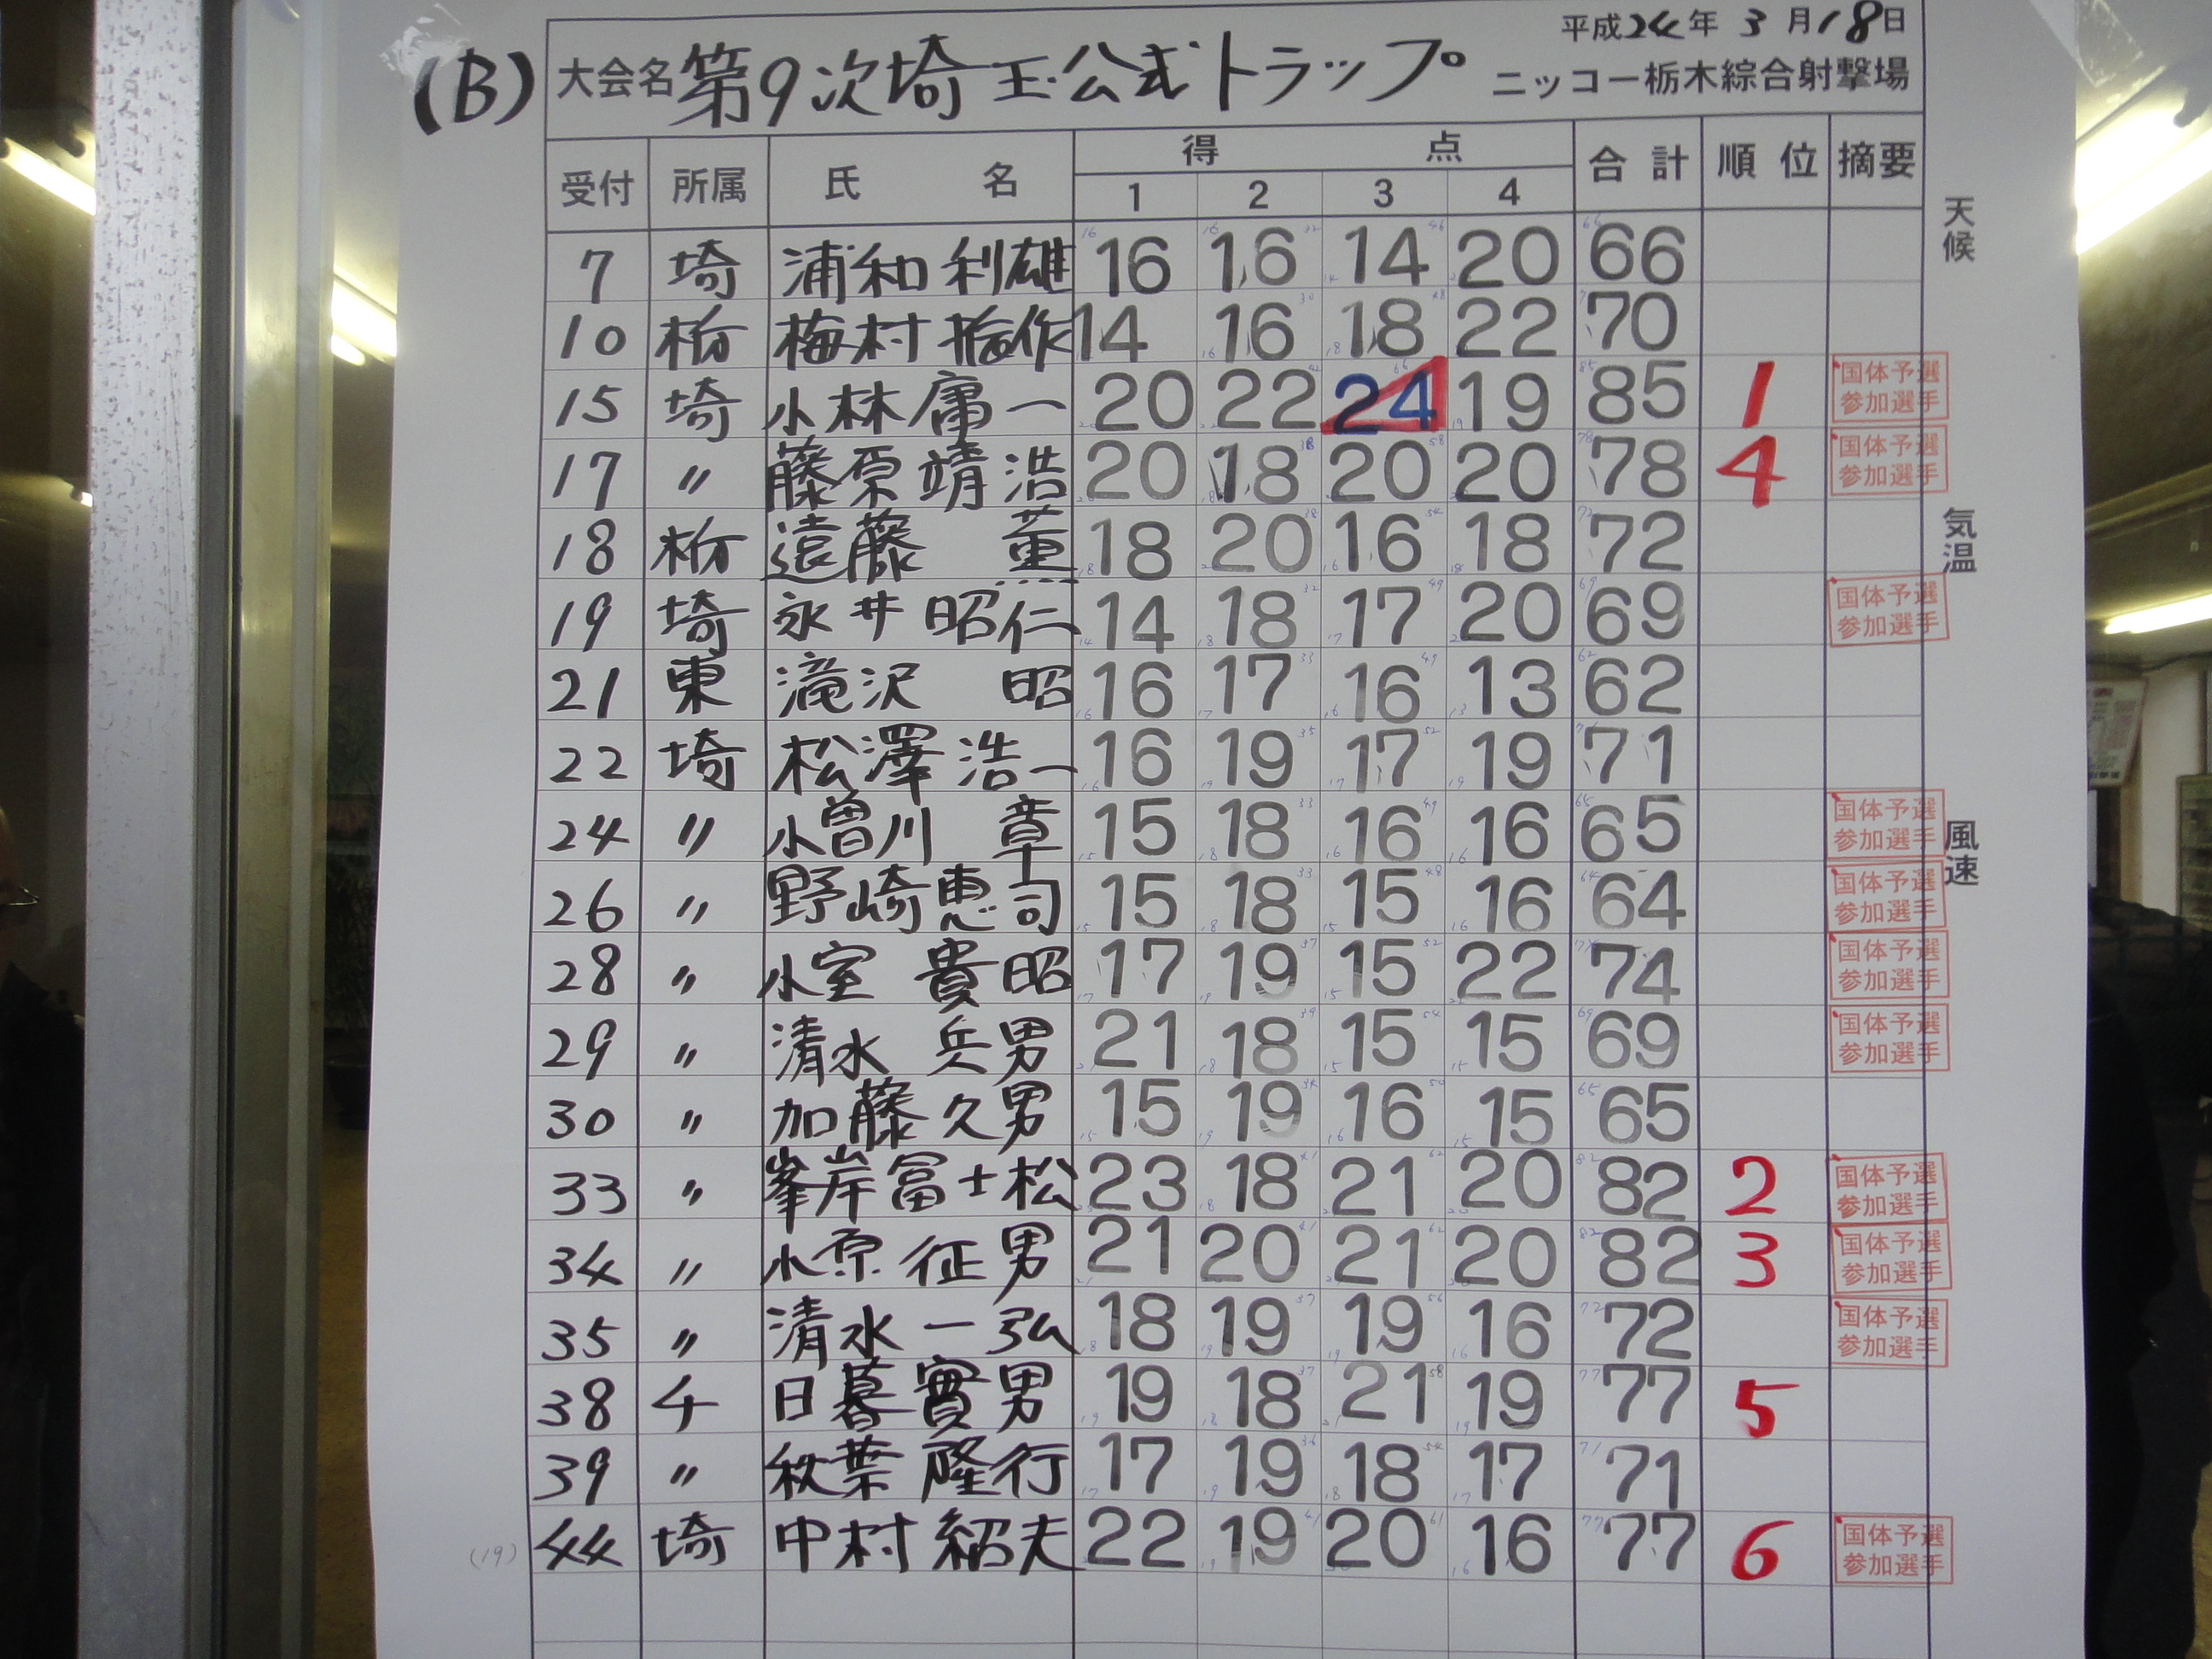 平成24年3月18日
(B) 大会名 第9次埼玉公式トラップ ニッコー栃木綜合射撃場
受付 所属 氏名 得点 合計 順位 摘要
1 2 3 4
天候
7 埼 浦和利雄 16 16 14 20 66
10 栃 梅村 14 16 18 22 70
15 埼 小林庸一 20 22 24 19 85 1 国体予選参加選手
17 〃 藤原靖浩 20 18 20 20 78 4 国体予選参加選手
18 栃 遠藤 薫 18 20 16 18 72
気温
19 埼 永井昭仁 14 18 17 20 69 国体予選参加選手
21 東 滝沢 昭 16 17 16 13 62
22 埼 松澤浩一 16 19 17 19 71
24 〃 小曽川 章 15 18 16 16 65 国体予選参加選手
風速
26 〃 野崎恵司 15 18 15 16 64 国体予選参加選手
28 〃 小室 貴昭 17 19 15 22 74 国体予選参加選手
29 〃 清水 兵男 21 18 15 15 69 国体予選参加選手
30 〃 加藤久男 15 19 16 15 65
33 〃 峯岸冨士松 23 18 21 20 82 2 国体予選参加選手
34 〃 小原征男 21 20 21 20 82 3 国体予選参加選手
35 〃 清水一弘 18 19 19 16 72 国体予選参加選手
38 千 日暮實男 19 18 21 19 77 5
39 〃 秋葉隆行 17 19 18 17 71
(19) 44 埼 中村紹夫 22 19 20 16 77 6 国体予選参加選手